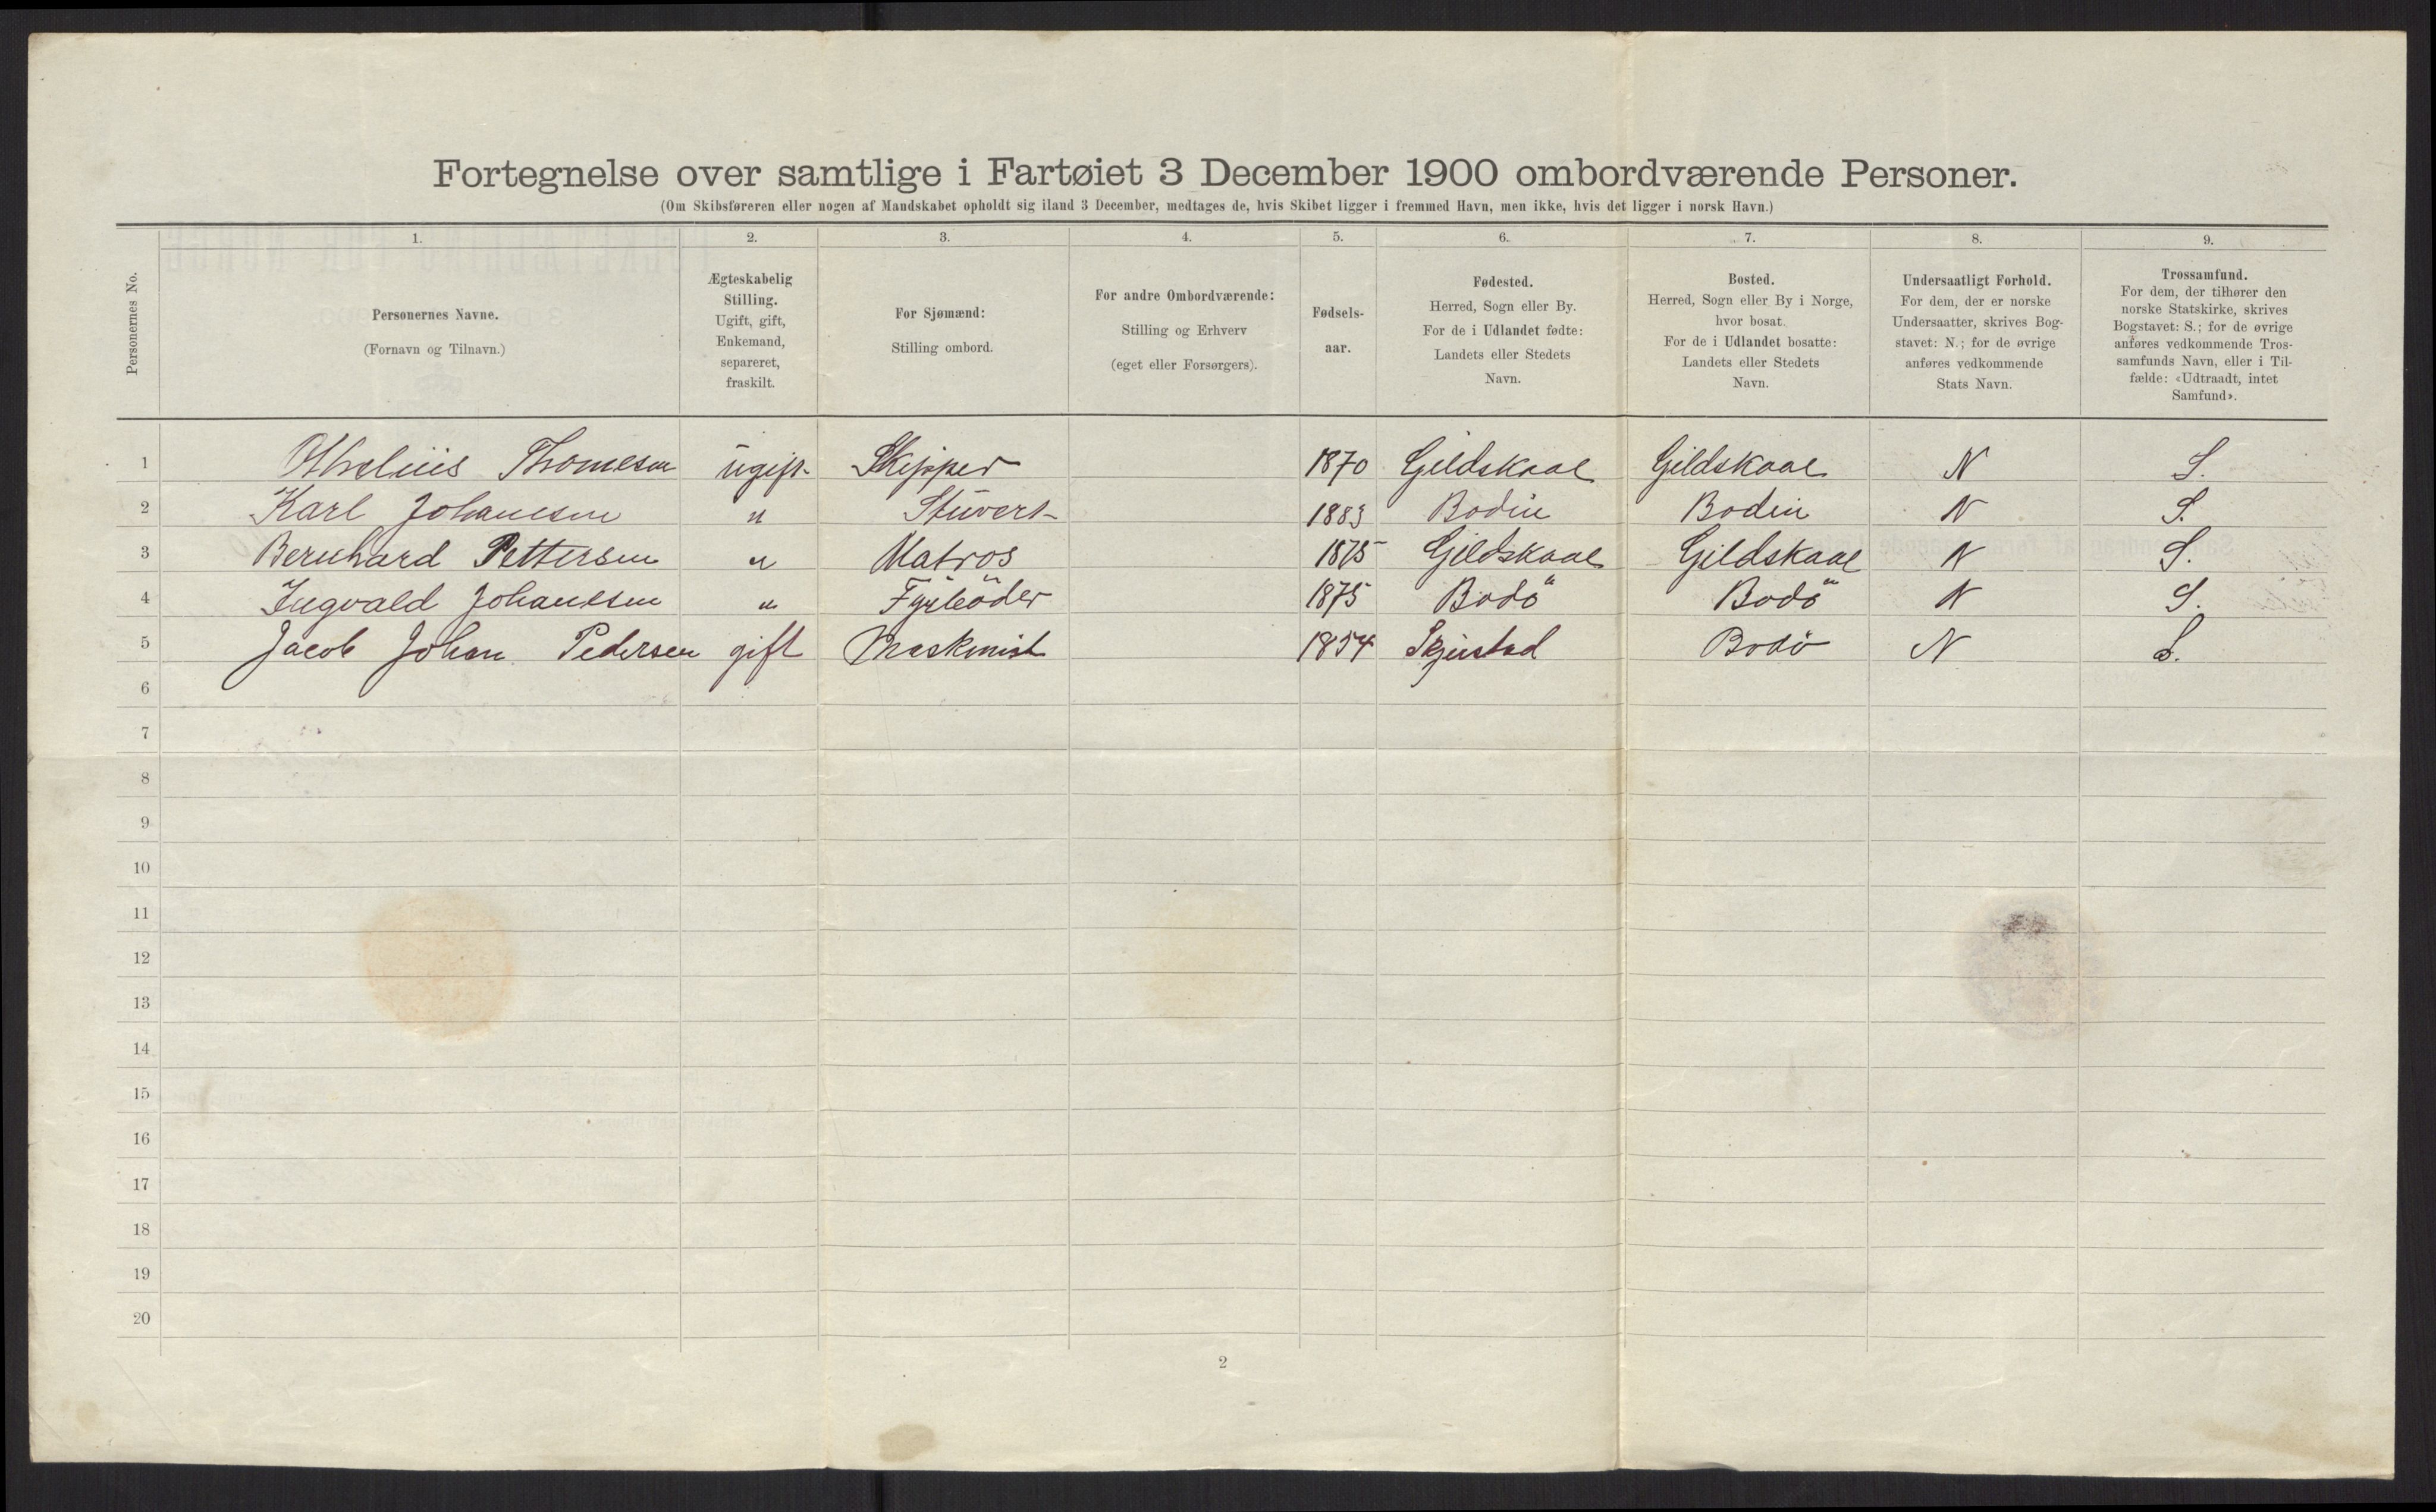 Fortegnelse over samtlige i Fartøiet 3 December 1900 ombordværende Personer.
(Om Skibsføreren eller nogen af Mandskabet opholdt sig iland 3 December, medtages de, hvis Skibet ligger i fremmed Havn, men ikke, hvis det ligger i norsk Havn.)
Personernes No.
1.
Personernes Navne.
(Fornavn og Tilnavn.)
2.
Ægteskabelig
Stilling.
Ugift, gift,
Enkemand,
separeret,
fraskilt.
3.
For Sjømænd:
Stilling ombord.
4.
For andre Ombordværende:
Stilling og Erhverv
(eget eller Forsørgers).
5.
Fødsels-
aar.
6.
Fødested.
Herred, Sogn eller By.
For de i Udlandet fødte:
Landets eller Stedets
Navn.
7.
Bosted.
Herred, Sogn eller By i Norge,
hvor bosat.
For de i Udlandet bosatte:
Landets eller Stedets
Navn.
8.
Undersaatligt Forhold.
For dem, der er norske
Undersaatter, skrives Bog-
stavet: N.; for de øvrige
anføres vedkommende
Stats Navn.
9.
Trossamfund.
For dem, der tilhører den
norske Statskirke, skrives
Bogstavet: S.; for de øvrige
anføres vedkommende Tros-
samfunds Navn, eller i Til-
fælde: «Udtraadt, intet
Samfund».
1 Thomesen ugift Skipper 1870 Gildskaal Gildskaal N S.
2 Karl Johansen " Stuvert 1883 Bodin Bodin N S.
3 Bernhard Pettersen " Matros 1875 Gildskaal Gildskaal N S.
4 Ingvald Johansen " Fyrböder 1875 Bodö Bodö N S.
5 Jacob Johan Pedersen gift Maskinist 1854 Skjerstad Bodö N S.
6
7
8
9
10
11
12
13
14
15
16
17
18
19
20
2